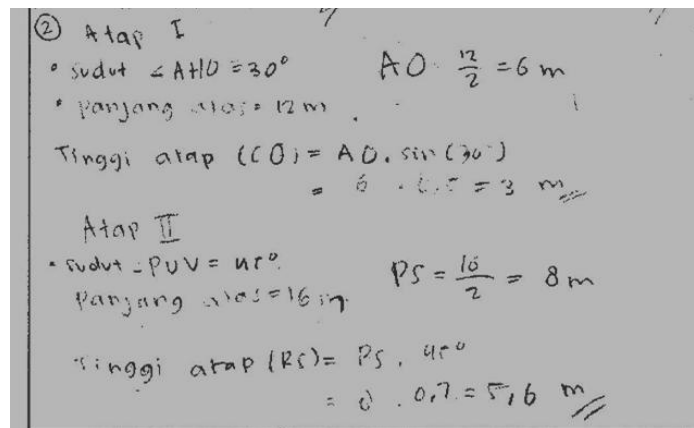 ② Atap I
• sudut ∠AHO = 30°
AO = 12/2 = 6 m
• panjang alas = 12 m
Tinggi atap (CO) = AO. sin (30°)
= 6 . 0,5 = 3 m
Atap II
• sudut = PUV = 45°
PS = 16/2 = 8 m
Panjang alas = 16 m
Tinggi atap (RS) = PS . 45°
= 8 . 0,7 = 5,6 m